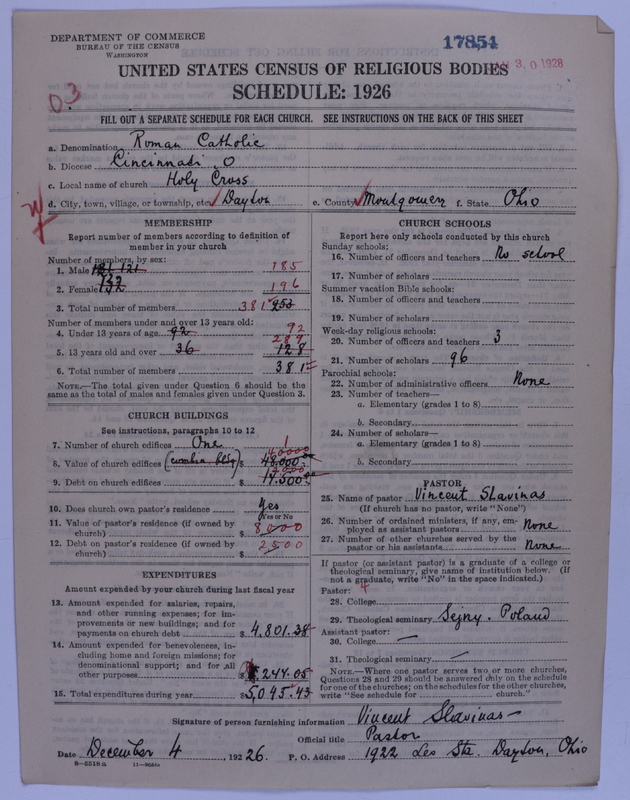 DEPARTMENT OF COMMERCE
BUREAU OF THE CENSUS
WASHINGTON
17854
3 0 1928
UNITED STATES CENSUS OF RELIGIOUS BODIES
SCHEDULE: 1926
03
FILL OUT A SEPARATE SCHEDULE FOR EACH CHURCH. SEE INSTRUCTIONS ON THE BACK OF THIS SHEET
a. Denomination Roman Catholic
b. Diocese Cincinnati, O
c. Local name of church Holy Cross
d. City, town, village, or township, etc. Dayton e. County Montgomery f. State Ohio
MEMBERSHIP
Report number of members according to definition of
member in your church
Number of members, by sex:
1. Male 121 185
2. Female 132 196
3. Total number of members 381 253
Number of members under and over 13 years old:
4. Under 13 years of age 92 92
289
5. 13 years old and over 36 128
6. Total number of members 381
NOTE.—The total given under Question 6 should be the
same as the total of males and females given under Question 3.
CHURCH BUILDINGS
See instructions, paragraphs 10 to 12
7. Number of church edifices One 1
40000
8. Value of church edifices (combin bldg) $ 48,000
12000
9. Debt on church edifices $ 14,500
10. Does church own pastor's residence? Yes
Yes or No
11. Value of pastor's residence (if owned by
church) $ 8000
12. Debt on pastor's residence (if owned by
church) $ 2500
EXPENDITURES
Amount expended by your church during last fiscal year
13. Amount expended for salaries, repairs,
and other running expenses; for im-
provements or new buildings; and for
payments on church debt $ 4,801.38
14. Amount expended for benevolences, in-
cluding home and foreign missions; for
denominational support; and for all
other purposes $ 244.05
15. Total expenditures during year $ 5,045.43
CHURCH SCHOOLS
Report here only schools conducted by this church
Sunday schools:
16. Number of officers and teachers No school
17. Number of scholars
Summer vacation Bible schools:
18. Number of officers and teachers
19. Number of scholars
Week-day religious schools:
20. Number of officers and teachers 3
21. Number of scholars 96
Parochial schools:
22. Number of administrative officers None
23. Number of teachers—
a. Elementary (grades 1 to 8)
b. Secondary
24. Number of scholars—
a. Elementary (grades 1 to 8)
b. Secondary
PASTOR
25. Name of pastor Vincent Slavinas
(If church has no pastor, write "None")
26. Number of ordained ministers, if any, em-
ployed as assistant pastors None
27. Number of other churches served by the
pastor or his assistants None
If pastor (or assistant pastor) is a graduate of a college or
theological seminary, give name of institution below. (If
not a graduate, write "No" in the space indicated.)
Pastor: 4
28. College
29. Theological seminary Sejny. Poland
Assistant pastor:
30. College —
31. Theological seminary —
NOTE.—Where one pastor serves two or more churches,
Questions 28 and 29 should be answered only on the schedule
for one of the churches; on the schedules for the other churches,
write "See schedule for ________ church."
Signature of person furnishing information Vincent Slavinas
Official title Pastor
Date December 4, 1926. P. O. Address 1922 Leo Str. Dayton, Ohio
8—5518a 11—9634